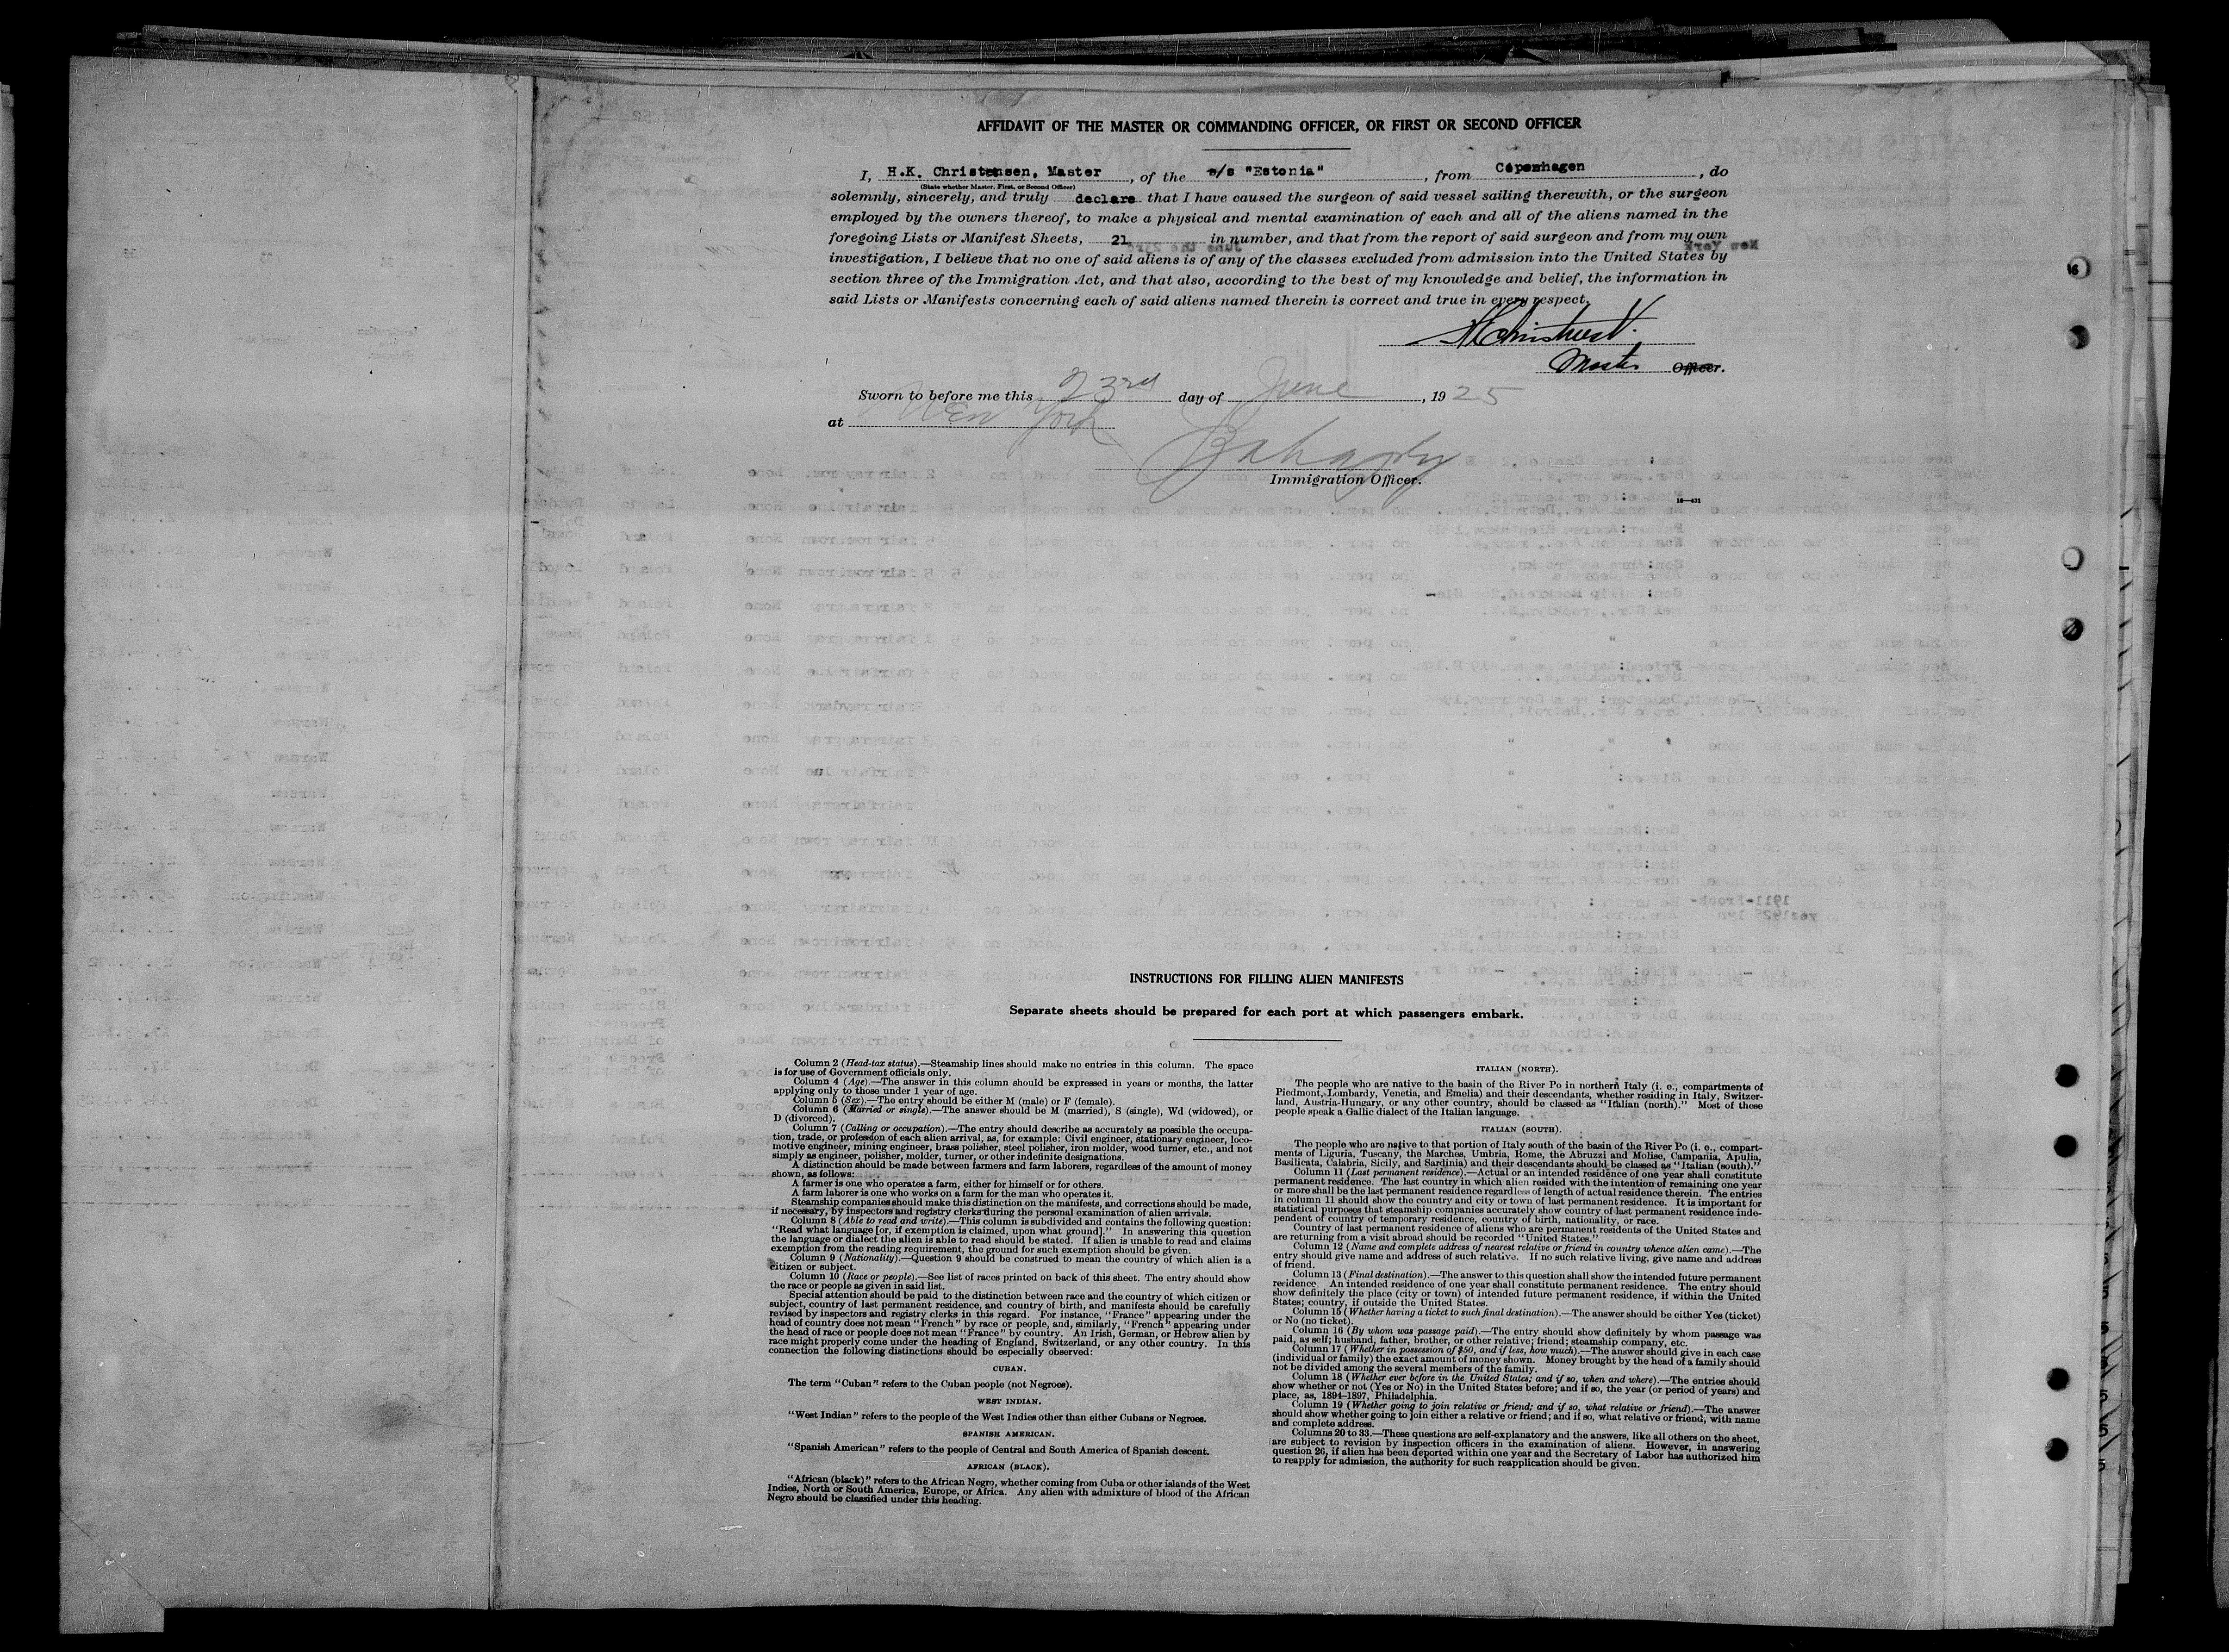 AFFIDAVIT OF THE MASTER OR COMMANDING OFFICER, OR FIRST OR SECOND OFFICER
I, H.K. Christensen, Master, of the s/s "Estonia", from Copenhagen, do
(State whether Master, First, or Second Officer)
solemnly, sincerely, and truly declare that I have caused the surgeon of said vessel sailing therewith, or the surgeon
employed by the owners thereof, to make a physical and mental examination of each and all of the aliens named in the
foregoing Lists or Manifest Sheets, 21 in number, and that from the report of said surgeon and from my own
investigation, I believe that no one of said aliens is of any of the classes excluded from admission into the United States by
section three of the Immigration Act, and that also, according to the best of my knowledge and belief, the information in
said Lists or Manifests concerning each of said aliens named therein is correct and true in every respect.
Master Officer.
Sworn to before me this 23rd day of June, 1925
at New York
Immigration Officer.
INSTRUCTIONS FOR FILLING ALIEN MANIFESTS
Separate sheets should be prepared for each port at which passengers embark.
Column 2 (Head-tax status).—Steamship lines should make no entries in this column. The space
is for use of Government officials only.
Column 4 (Age).—The answer in this column should be expressed in years or months, the latter
applying only to those under 1 year of age.
Column 5 (Sex).—The entry should be either M (male) or F (female).
Column 6 (Married or single).—The answer should be M (married), S (single), Wd (widowed), or
D (divorced).
Column 7 (Calling or occupation).—The entry should describe as accurately as possible the occupa-
tion, trade, or profession of each alien arrival, as, for example: Civil engineer, stationary engineer, loco-
motive engineer, mining engineer, brass polisher, steel polisher, iron molder, wood turner, etc., and not
simply as engineer, polisher, molder, turner, or other indefinite designations.
A distinction should be made between farmers and farm laborers, regardless of the amount of money
shown, as follows:
A farmer is one who operates a farm, either for himself or for others.
A farm laborer is one who works on a farm for the man who operates it.
Steamship companies should make this distinction on the manifests, and corrections should be made,
if necessary, by inspectors and registry clerks during the personal examination of alien arrivals.
Column 8 (Able to read and write).—This column is subdivided and contains the following question:
"Read what language [or, if exemption is claimed, upon what ground]." In answering this question
the language or dialect the alien is able to read should be stated. If alien is unable to read and claims
exemption from the reading requirement, the ground for such exemption should be given.
Column 9 (Nationality).—Question 9 should be construed to mean the country of which alien is a
citizen or subject.
Column 10 (Race or people).—See list of races printed on back of this sheet. The entry should show
the race or people as given in said list.
Special attention should be paid to the distinction between race and the country of which citizen or
subject, country of last permanent residence, and country of birth, and manifests should be carefully
revised by inspectors and registry clerks in this regard. For instance, "France" appearing under the
head of country does not mean "French" by race or people, and, similarly, "French" appearing under
the head of race or people does not mean "France" by country. An Irish, German, or Hebrew alien by
race might properly come under the heading of England, Switzerland, or any other country. In this
connection the following distinctions should be especially observed:
CUBAN.
The term "Cuban" refers to the Cuban people (not Negroes).
WEST INDIAN.
"West Indian" refers to the people of the West Indies other than either Cubans or Negroes.
SPANISH AMERICAN.
"Spanish American" refers to the people of Central and South America of Spanish descent.
AFRICAN (BLACK).
"African (black)" refers to the African Negro, whether coming from Cuba or other islands of the West
Indies, North or South America, Europe, or Africa. Any alien with admixture of blood of the African
Negro should be classified under this heading.
ITALIAN (NORTH).
The people who are native to the basin of the River Po in northern Italy (i. e., compartments of
Piedmont, Lombardy, Venetia, and Emelia) and their descendants, whether residing in Italy, Switzer-
land, Austria-Hungary, or any other country, should be classed as "Italian (north)." Most of those
people speak a Gallic dialect of the Italian language.
ITALIAN (SOUTH).
The people who are native to that portion of Italy south of the basin of the River Po (i. e., compart-
ments of Liguria, Tuscany, the Marches, Umbria, Rome, the Abruzzi and Molise, Campania, Apulia,
Basilicata, Calabria, Sicily, and Sardinia) and their descendants should be classed as "Italian (south)."
Column 11 (Last permanent residence).—Actual or an intended residence of one year shall constitute
permanent residence. The last country in which alien resided with the intention of remaining one year
or more shall be the last permanent residence regardless of length of actual residence therein. The entries
in column 11 should show the country and city or town of last permanent residence. It is important for
statistical purposes that steamship companies accurately show country of last permanent residence inde-
pendent of country of temporary residence, country of birth, nationality, or race.
Country of last permanent residence of aliens who are permanent residents of the United States and
are returning from a visit abroad should be recorded "United States."
Column 12 (Name and complete address of nearest relative or friend in country whence alien came).—The
entry should give name and address of such relative. If no such relative living, give name and address
of friend.
Column 13 (Final destination).—The answer to this question shall show the intended future permanent
residence. An intended residence of one year shall constitute permanent residence. The entry should
show definitely the place (city or town) of intended future permanent residence, if within the United
States; country, if outside the United States.
Column 15 (Whether having a ticket to such final destination).—The answer should be either Yes (ticket)
or No (no ticket).
Column 16 (By whom was passage paid).—The entry should show definitely by whom passage was
paid, as self; husband, father, brother, or other relative; friend; steamship company, etc.
Column 17 (Whether in possession of $50, and if less, how much).—The answer should give in each case
(individual or family) the exact amount of money shown. Money brought by the head of a family should
not be divided among the several members of the family.
Column 18 (Whether ever before in the United States; and if so, when and where).—The entries should
show whether or not (Yes or No) in the United States before; and if so, the year (or period of years) and
place, as, 1894–1897, Philadelphia.
Column 19 (Whether going to join relative or friend; and if so, what relative or friend).—The answer
should show whether going to join either a relative or friend; and if so, what relative or friend, with name
and complete address.
Columns 20 to 33.—These questions are self-explanatory and the answers, like all others on the sheet,
are subject to revision by inspection officers in the examination of aliens. However, in answering
question 26, if alien has been deported within one year and the Secretary of Labor has authorized him
to reapply for admission, the authority for such reapplication should be given.